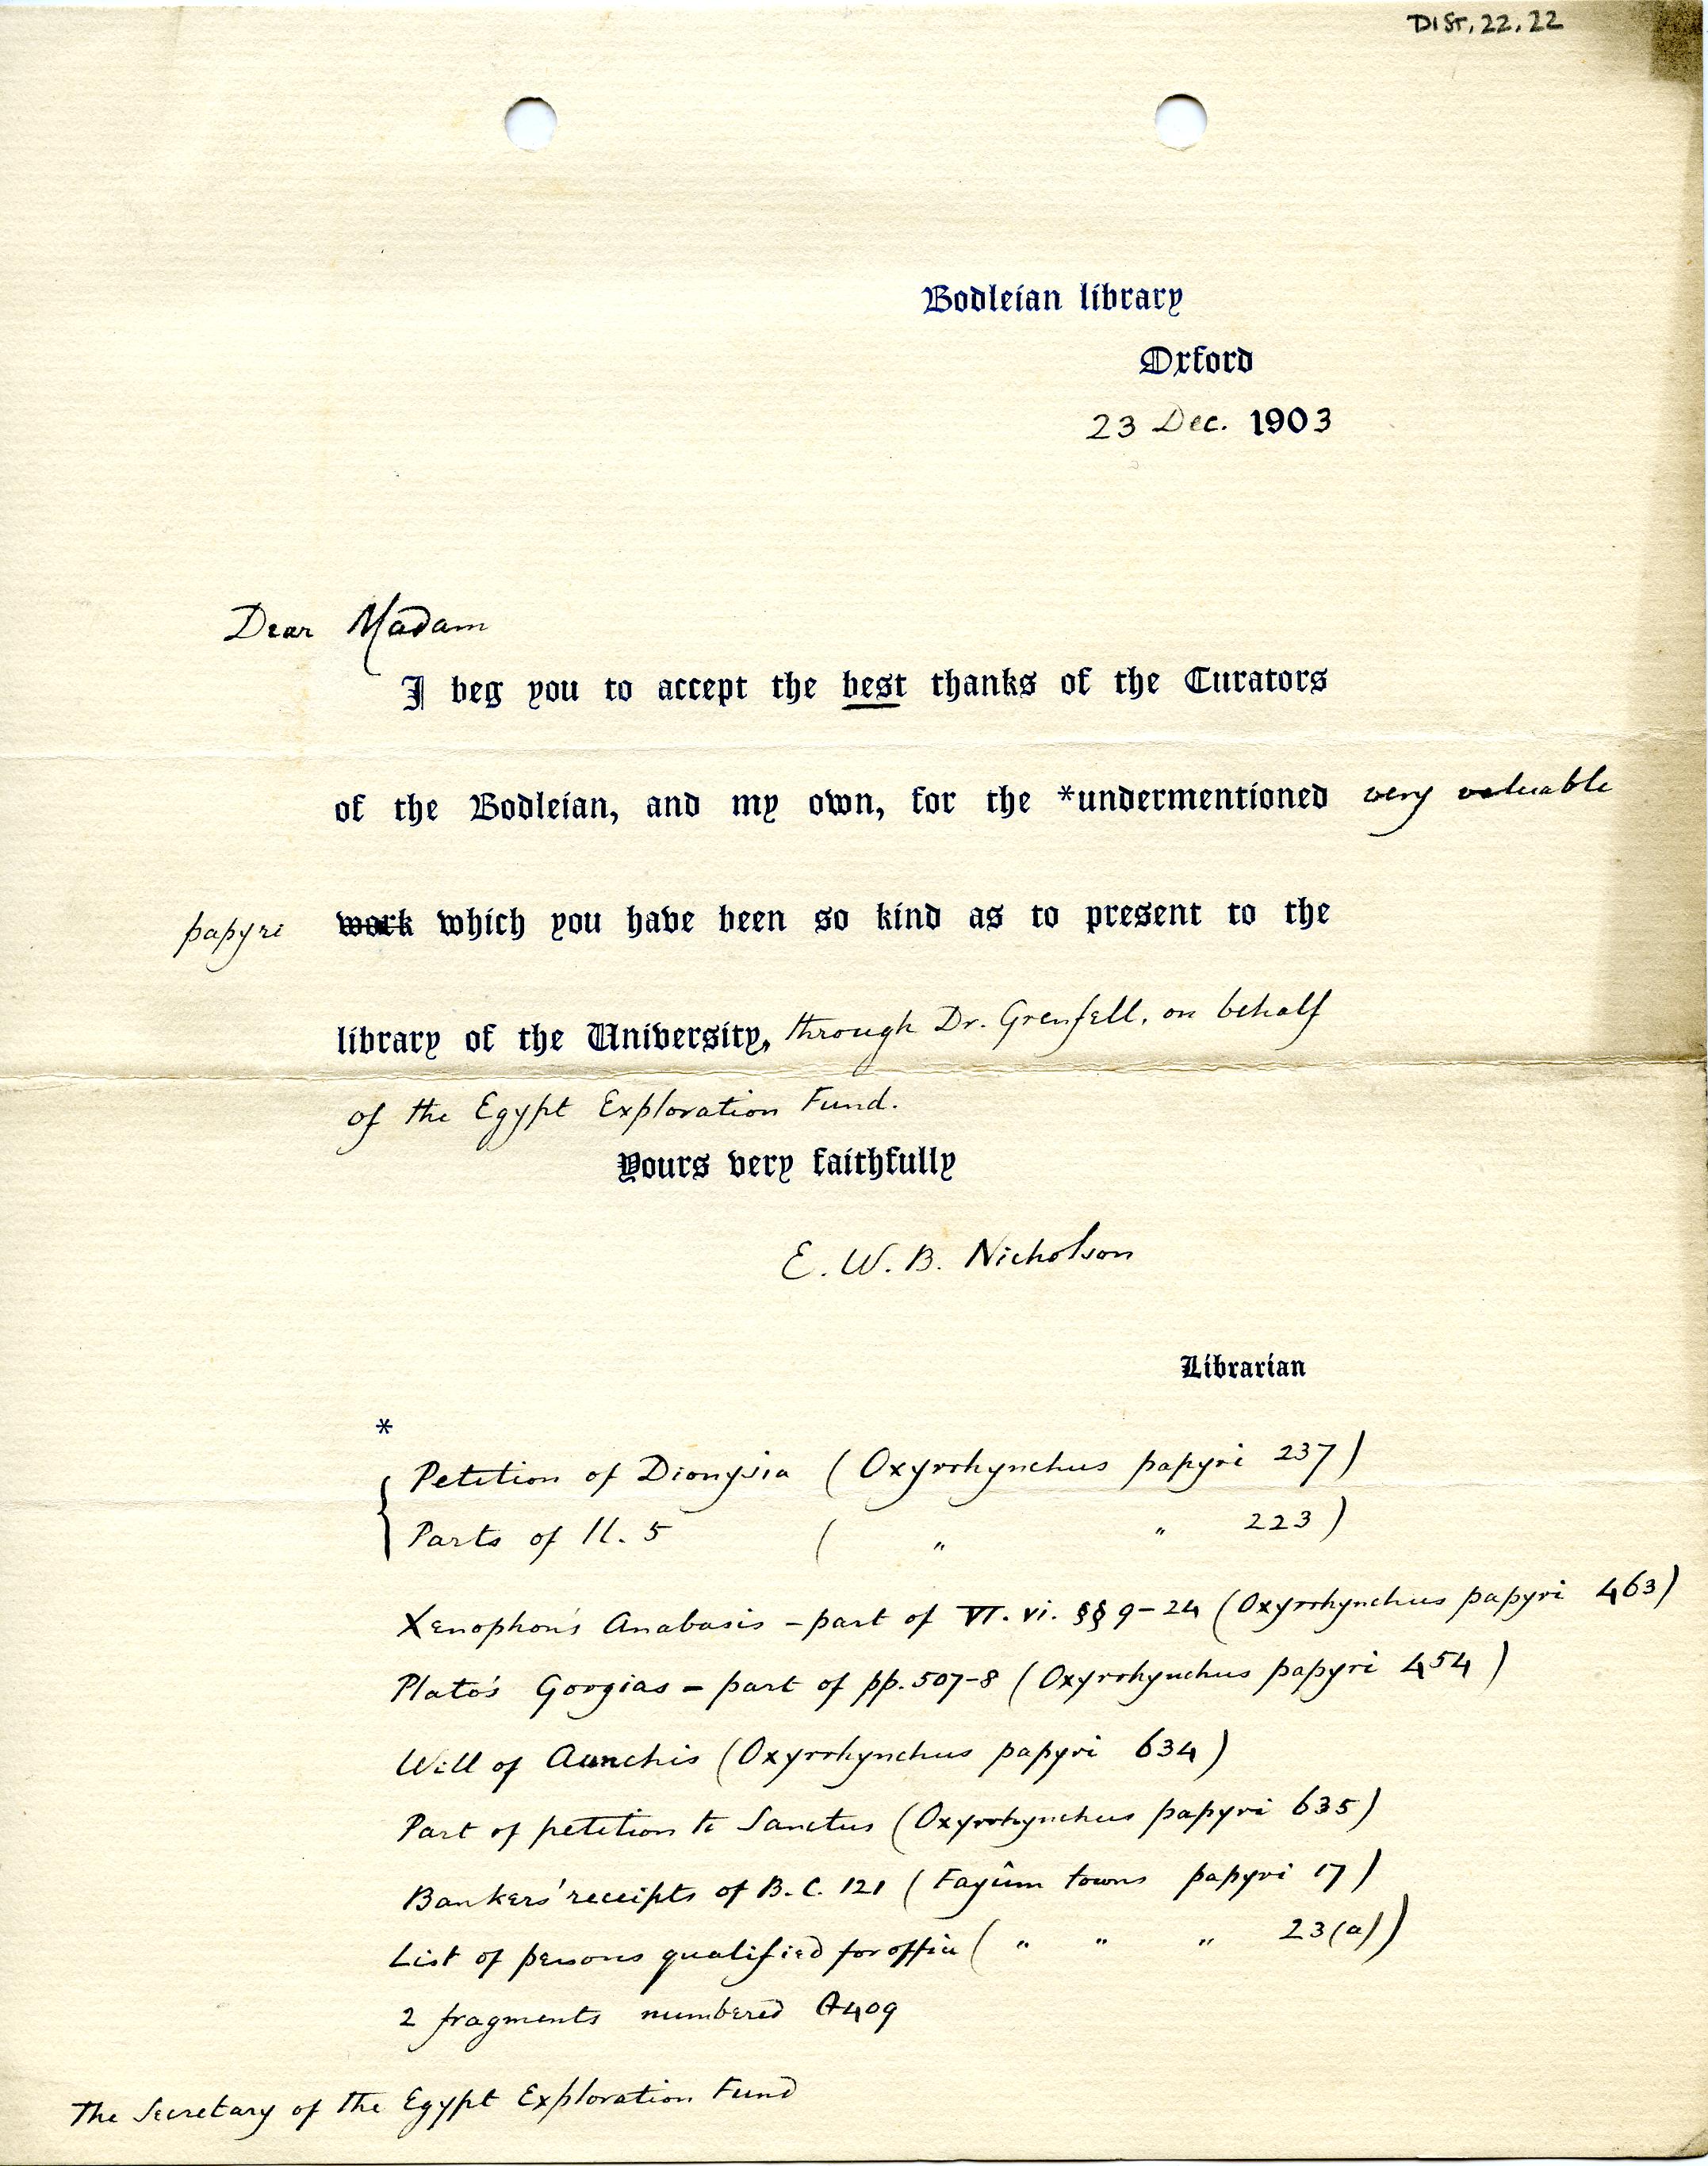 DIST.22.22
Bodleian library
Oxford
23 Dec. 1903
Dear Madam
I beg you to accept the best thanks of the Curators
of the Bodleian, and my own, for the *undermentioned very valuable
papyri work which you have been so kind as to present to the
library of the University, through Dr. Grenfell, on behalf
of the Egypt Exploration Fund.
Yours very faithfully
E. W. B. Nicholson
Librarian
*
Petition of Dionysia (Oxyrrhynchus papyri 237)
Parts of Il. 5 ( " " 223)
Xenophon's Anabasis - part of VI. vi. §§ 9-24 (Oxyrrhynchus papyri 463)
Plato's Gorgias - part of pp. 507-8 (Oxyrrhynchus papyri 454)
Will of Aunchis (Oxyrrhynchus papyri 634)
Part of petition to Sanctus (Oxyrrhynchus papyri 635)
Bankers' receipts of B.C. 121 (Fayûm towns papyri 17)
List of persons qualified for office ( " " " 23(a))
2 fragments numbered A409
The Secretary of the Egypt Exploration Fund